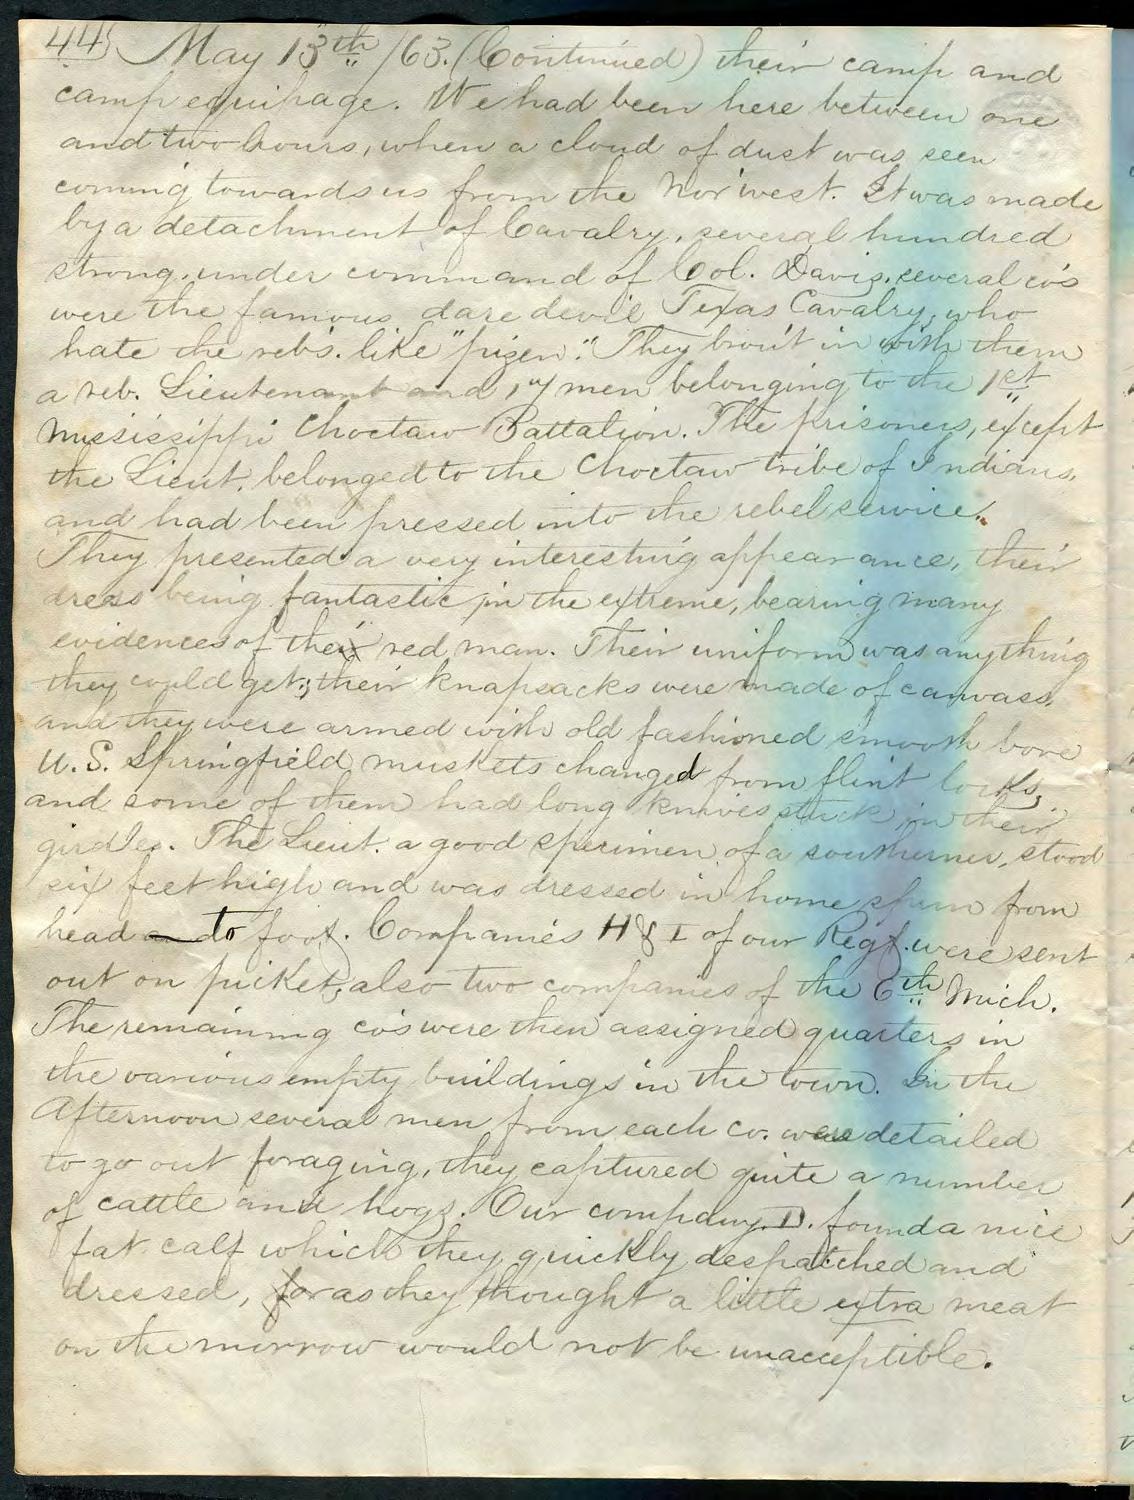 44) May 13th /63. (Continued) their camp and
camp equipage. We had been here between one
and two hours, when a cloud of dust was seen
coming towards us from the Nor'west. It was made
by a detachment of Cavalry, several hundred
strong, under command of Col. Davis, several co's
were the famous dare devil Texas Cavalry, who
hate the reb's. like "pizen". They brou't in with them
a reb. Lieutenant and 17 men belonging to the 1st
Mississippi Choctaw Battalion. The prisoners, except
the Lieut. belonged to the Choctaw tribe of Indians,
and had been pressed into the rebel service.
They presented a very interesting appearance, their
dress being fantastic in the extreme, bearing many
evidences of the red man. Their uniform was anything
they could get; their knapsacks were made of canvass,
and they were armed with old fashioned smooth bore
U.S. Springfield muskets changed from flint locks,
and some of them had long knives stuck in their
girdles. The Lieut. a good specimen of a southerner, stood
six feet high and was dressed in home spun from
head to foot. Companies H & I of our Regt. were sent
out on picket, also two companies of the 6th Mich.
The remaining co's were then assigned quarters in
the various empty buildings in the town. In the
Afternoon several men from each co. were detailed
to go out foraging, they captured quite a number
of cattle and hogs. Our company D. found a nice
fat calf which they quickly despatched and
dressed, for as they thought a little extra meat
on the morrow would not be unacceptible.